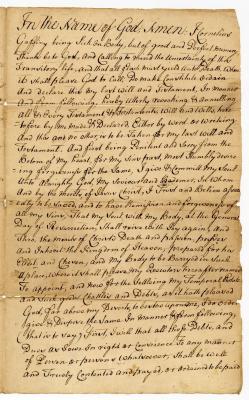 In the Name of God Amen. I Cornelius
Gaffney being Sick In Body, but of good and Perfect Memory
Thanks be to God, and Calling to mind the uncertainty of this
Transitory life, and that all Flesh must yeild unto Death, When
it shall please God to Call, Do make Constitute ordain
And declare this my last will and Testament, In manner
And form following, hereby utterly revoking & annulling
all & Every Testament & Testaments will and wills here-
tofore by me made & Declared Either by word or Writeing
And this and no other, is to be Taken for my last will and
Testament. And first being Penitent and Sorry from the
Botom of my heart, for my Sins past, most Humbly desire-
ing forgiveness for the Same, I give & Commit my Soul
Unto Almighty God, my Saviour and Redeemer, in whom
And by the Merits of Jesus Christ, I Trust and Believe assur-
edly to be Saved, and to have Remission and forgiveness of
all my Sins, That my Soul with my Body, at the General
Day of Resurrection Shall arise with Joy again, and
Thro' the merits of Christs Death and passion, possess
And Inherit the Kingdom of Heaven, prepared for his
Elect and Chosen, and My Body to be Buryed in Such
a place, where it shall please my Executors hereafter named
To appoint, and now for the Settling my Temporal Estate
and Such goods Chattles and Debts, as it hath pleased
God, far above my Deserts, to bestow upon me, I do order
give & Dispose the Same In Manner & form following,
That is to say, First, I will that all those Debts, and
Dues as I owe In right or Conscience To any manner
of Person or persons Whatsoever, Shall be well
and Truely Contented and payed, or ordained to be paid